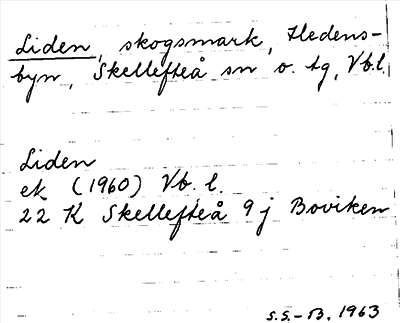 Liden, skogsmark, Hedens-
byn, Skellefteå sn o. tg, Vb.l.
Liden
ek (1960) Vb. l.
22 K Skellefteå 9 j Boviken
S.S.-B. 1963